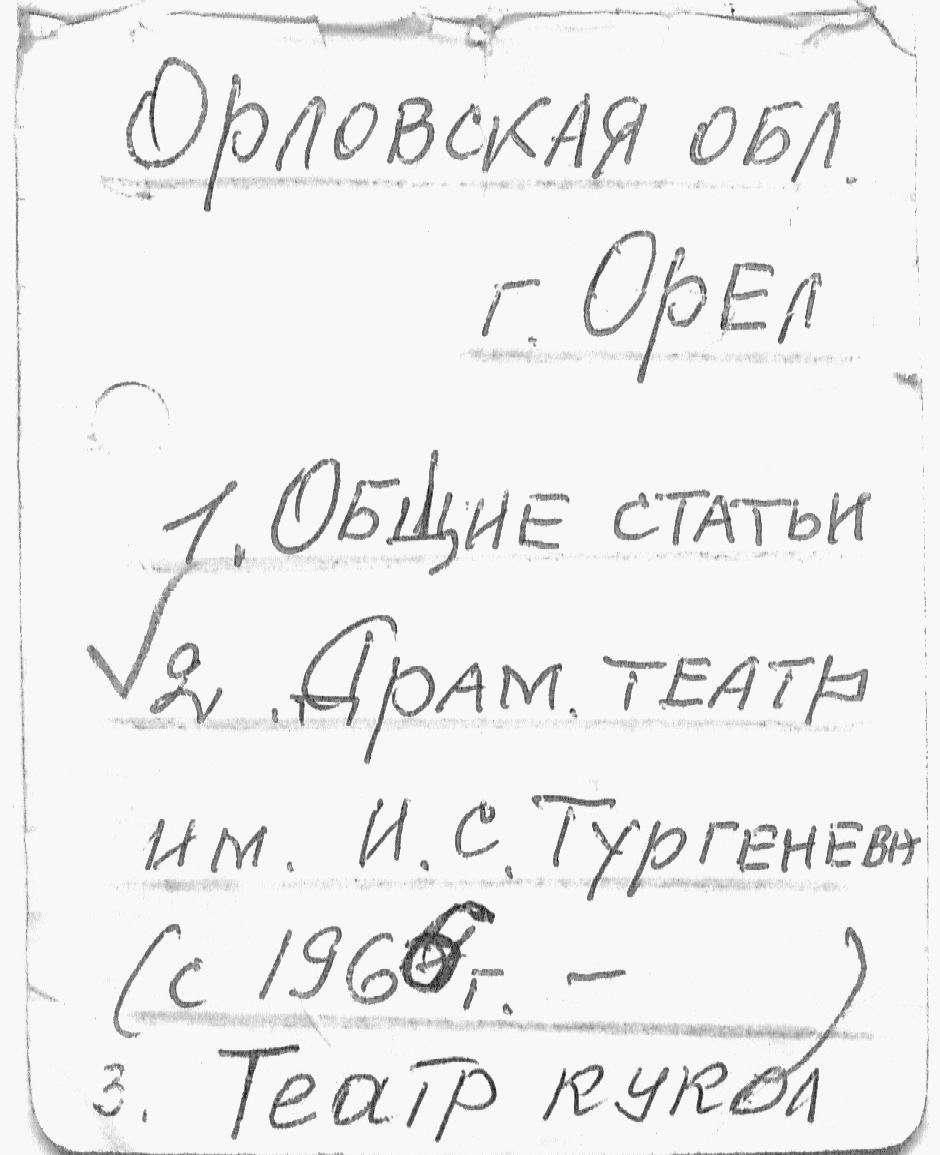 Орловская обл.
г. Орел
1. Общие статьи
√ 2. Драм. театр
им. И.С. Тургенева
(с 1966 г. – )
3. Театр кукол